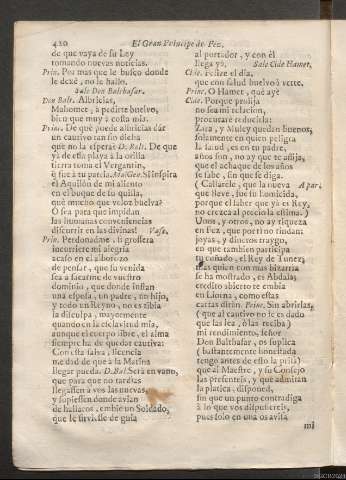 420 El Gran Principe de Fez,
de que vaya de su Ley
tomando nuevas noticias.
Prin. Por mas que le busco donde
le dexè, no le hallo.
Sale Don Balthasar.
Don Balt. Albricias,
Mahomet, à pedirte buelvo,
bien que muy à costa mia.
Prin. De què puede albricias dàr
un cautivo tan sin dicha
que no la espera? D. Balt. De que
yà de esta playa à la orilla
tierra toma el Vergantin,
que à tu patria
el Aquilòn de mi aliento
en el buque de su quilla,
què mucho que veloz buelva?
O sea para que impidan
las humanas conveniencias
discurrir en las divinas! Vase.
Prin. Perdonadme, si grossera
incurriere mi alegria
acaso en el alborozo
de pensar, que su venida
sea à sacarme de vuestro
dominio, que donde instan
una esposa, un padre, un hijo,
y todo un Reyno, no es tibia
la disculpa, mayormente
quando en la esclavitud mia,
aunque el cuerpo libre, el alma
siempre ha de quedar cautiva:
Con esta salva, licencia
me dad de que à la Marina
llegar pueda. D. Bal. Serà en vano,
que para que no tardes
llegassen à vos las nuevas,
y supiessen donde avian
de hallaros, embiè un Soldado,
que le sirviesse de guia
al portador, y con èl
llega yà. Sale Cide Hamet.
Cid. Felize el dia,
que con salud buelvo à verte.
Prin. O Hamet, què ay?
Cide. Porque prolija
no sea mi relacion,
procurarè reducirla:
Zara, y Muley quedan buenos,
solamente en quien peligra
la salud, es en tu padre,
años son, no ay que te aflija,
que el achaque de los años
se sabe, sin que se diga.
( Callarèle, que la nueva Apar,
que lleve, fue su homicida,
porque el saber que yà es Rey,
no crezca al precio la estima. )
Unos, y otros, no ay riqueza
en Fez, que por ti no rindan
joyas, y dineros traygo,
en que tambien participa
tu cuñado, el Rey de Tunez;
mas quien con mas bizarria
se ha mostrado, es Abdalà;
credito abierto te embia
en Liorna, como estas
cartas diràn. Prin. Sin abrirlas,
( que al cautivo no le es dado
que las lea, ò las reciba)
mi rendimiento, señor
Don Balthasar, os suplica
( bastantemente honestada
tengo antes de esto la prisa)
que al Maestre, y su Consejo
las presenteis, y que admitan
la platica, disponed,
sin que un punto contradiga
à lo que vos dispusiereis,
pues solo en una os avisa
mi